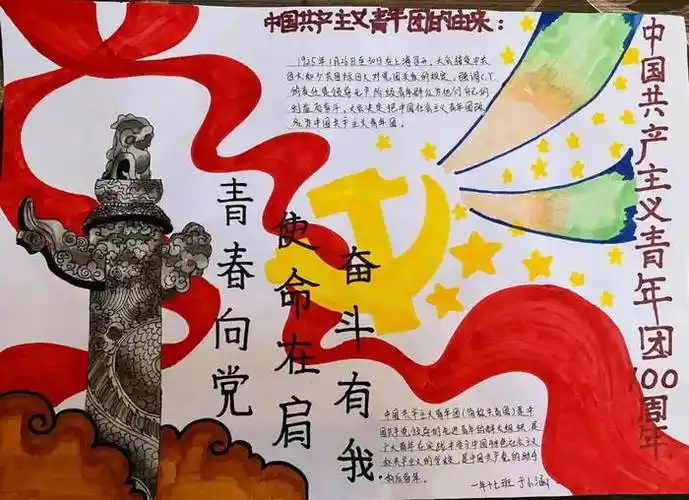 中国共产主义青年团的由来：
1925年1月26日至30日在上海召开，大会接受中共
的责任是领导无产阶级青年群众为他们自己的
利益而奋斗。大会决定把中国社会主义青年团改
名为中国共产主义青年团。
中国共产主义青年团100周年
青春向党
使命在肩
奋斗有我
中国共产主义青年团(简称共青团)是中
国共产党领导的先进青年的群众组织，是
广大青年在实践中学习中国特色社会主义
和共产主义的学校，是中国共产党的助手
和后备军。
一年十七班